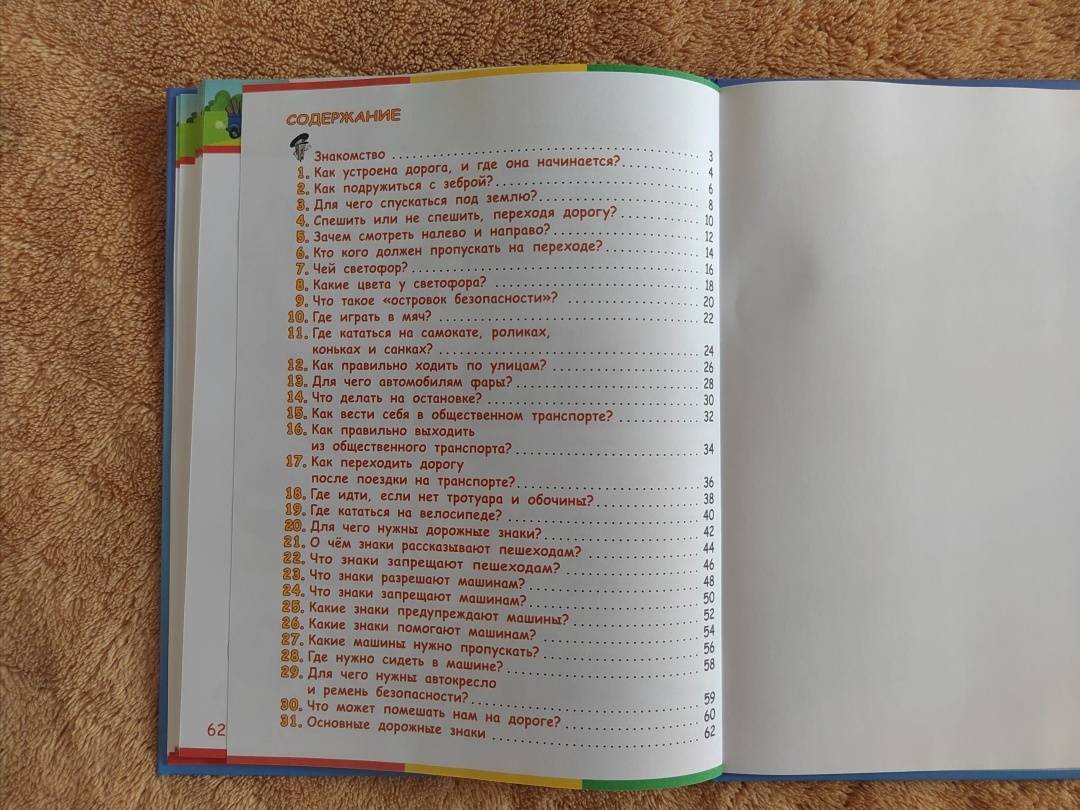 СОДЕРЖАНИЕ
Знакомство 3
1. Как устроена дорога, и где она начинается? 4
2. Как подружиться с зеброй? 6
3. Для чего спускаться под землю? 8
4. Спешить или не спешить, переходя дорогу? 10
5. Зачем смотреть налево и направо? 12
6. Кто кого должен пропускать на переходе? 14
7. Чей светофор? 16
8. Какие цвета у светофора? 18
9. Что такое «островок безопасности»? 20
10. Где играть в мяч? 22
11. Где кататься на самокате, роликах,
коньках и санках? 24
12. Как правильно ходить по улицам? 26
13. Для чего автомобилям фары? 28
14. Что делать на остановке? 30
15. Как вести себя в общественном транспорте? 32
16. Как правильно выходить
из общественного транспорта? 34
17. Как переходить дорогу
после поездки на транспорте? 36
18. Где идти, если нет тротуара и обочины? 38
19. Где кататься на велосипеде? 40
20. Для чего нужны дорожные знаки? 42
21. О чём знаки рассказывают пешеходам? 44
22. Что знаки запрещают пешеходам? 46
23. Что знаки разрешают машинам? 48
24. Что знаки запрещают машинам? 50
25. Какие знаки предупреждают машины? 52
26. Какие знаки помогают машинам? 54
27. Какие машины нужно пропускать? 56
28. Где нужно сидеть в машине? 58
29. Для чего нужны автокресло
и ремень безопасности? 59
30. Что может помешать нам на дороге? 60
31. Основные дорожные знаки 62
62